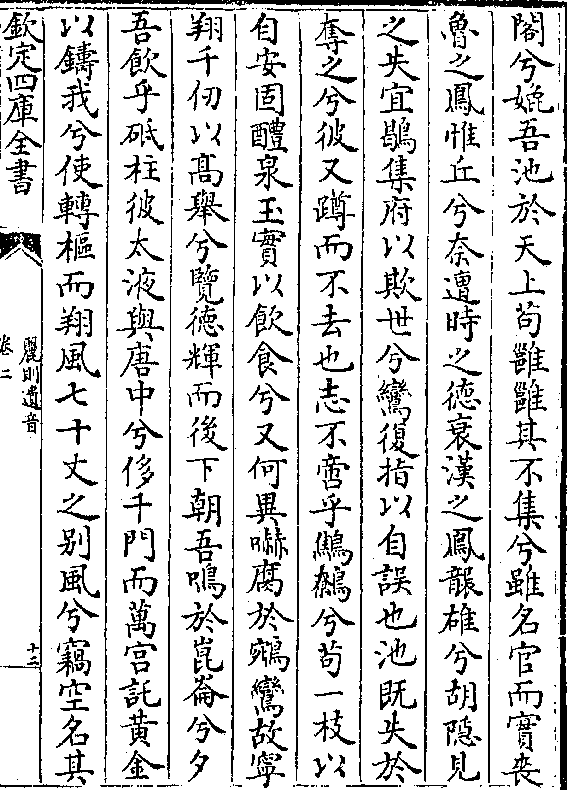 閣兮娩吾池於天上苟雝雝其不集兮雖名官而實喪
魯之鳳惟丘兮奈遭時之德衰漢之鳳襲雄兮胡隠見
之失宜鶡集府以欺世兮鸞復指以自誤也池既失於
奪之兮彼又蹲而不去也志不啻乎鷦鷯兮苟一枝以
自安固醴泉玉實以飲食兮又何異嚇腐於鵷鸞故寧
翔千仞以髙舉兮覽德輝而後下朝吾鳴於崑崙兮夕
吾飲乎砥柱彼太液與唐中兮侈千門而萬宫託黄金
以鑄我兮使轉樞而翔風七十丈之别風兮竊空名其
欽定四庫全書
麗則遺音
卷二
十三